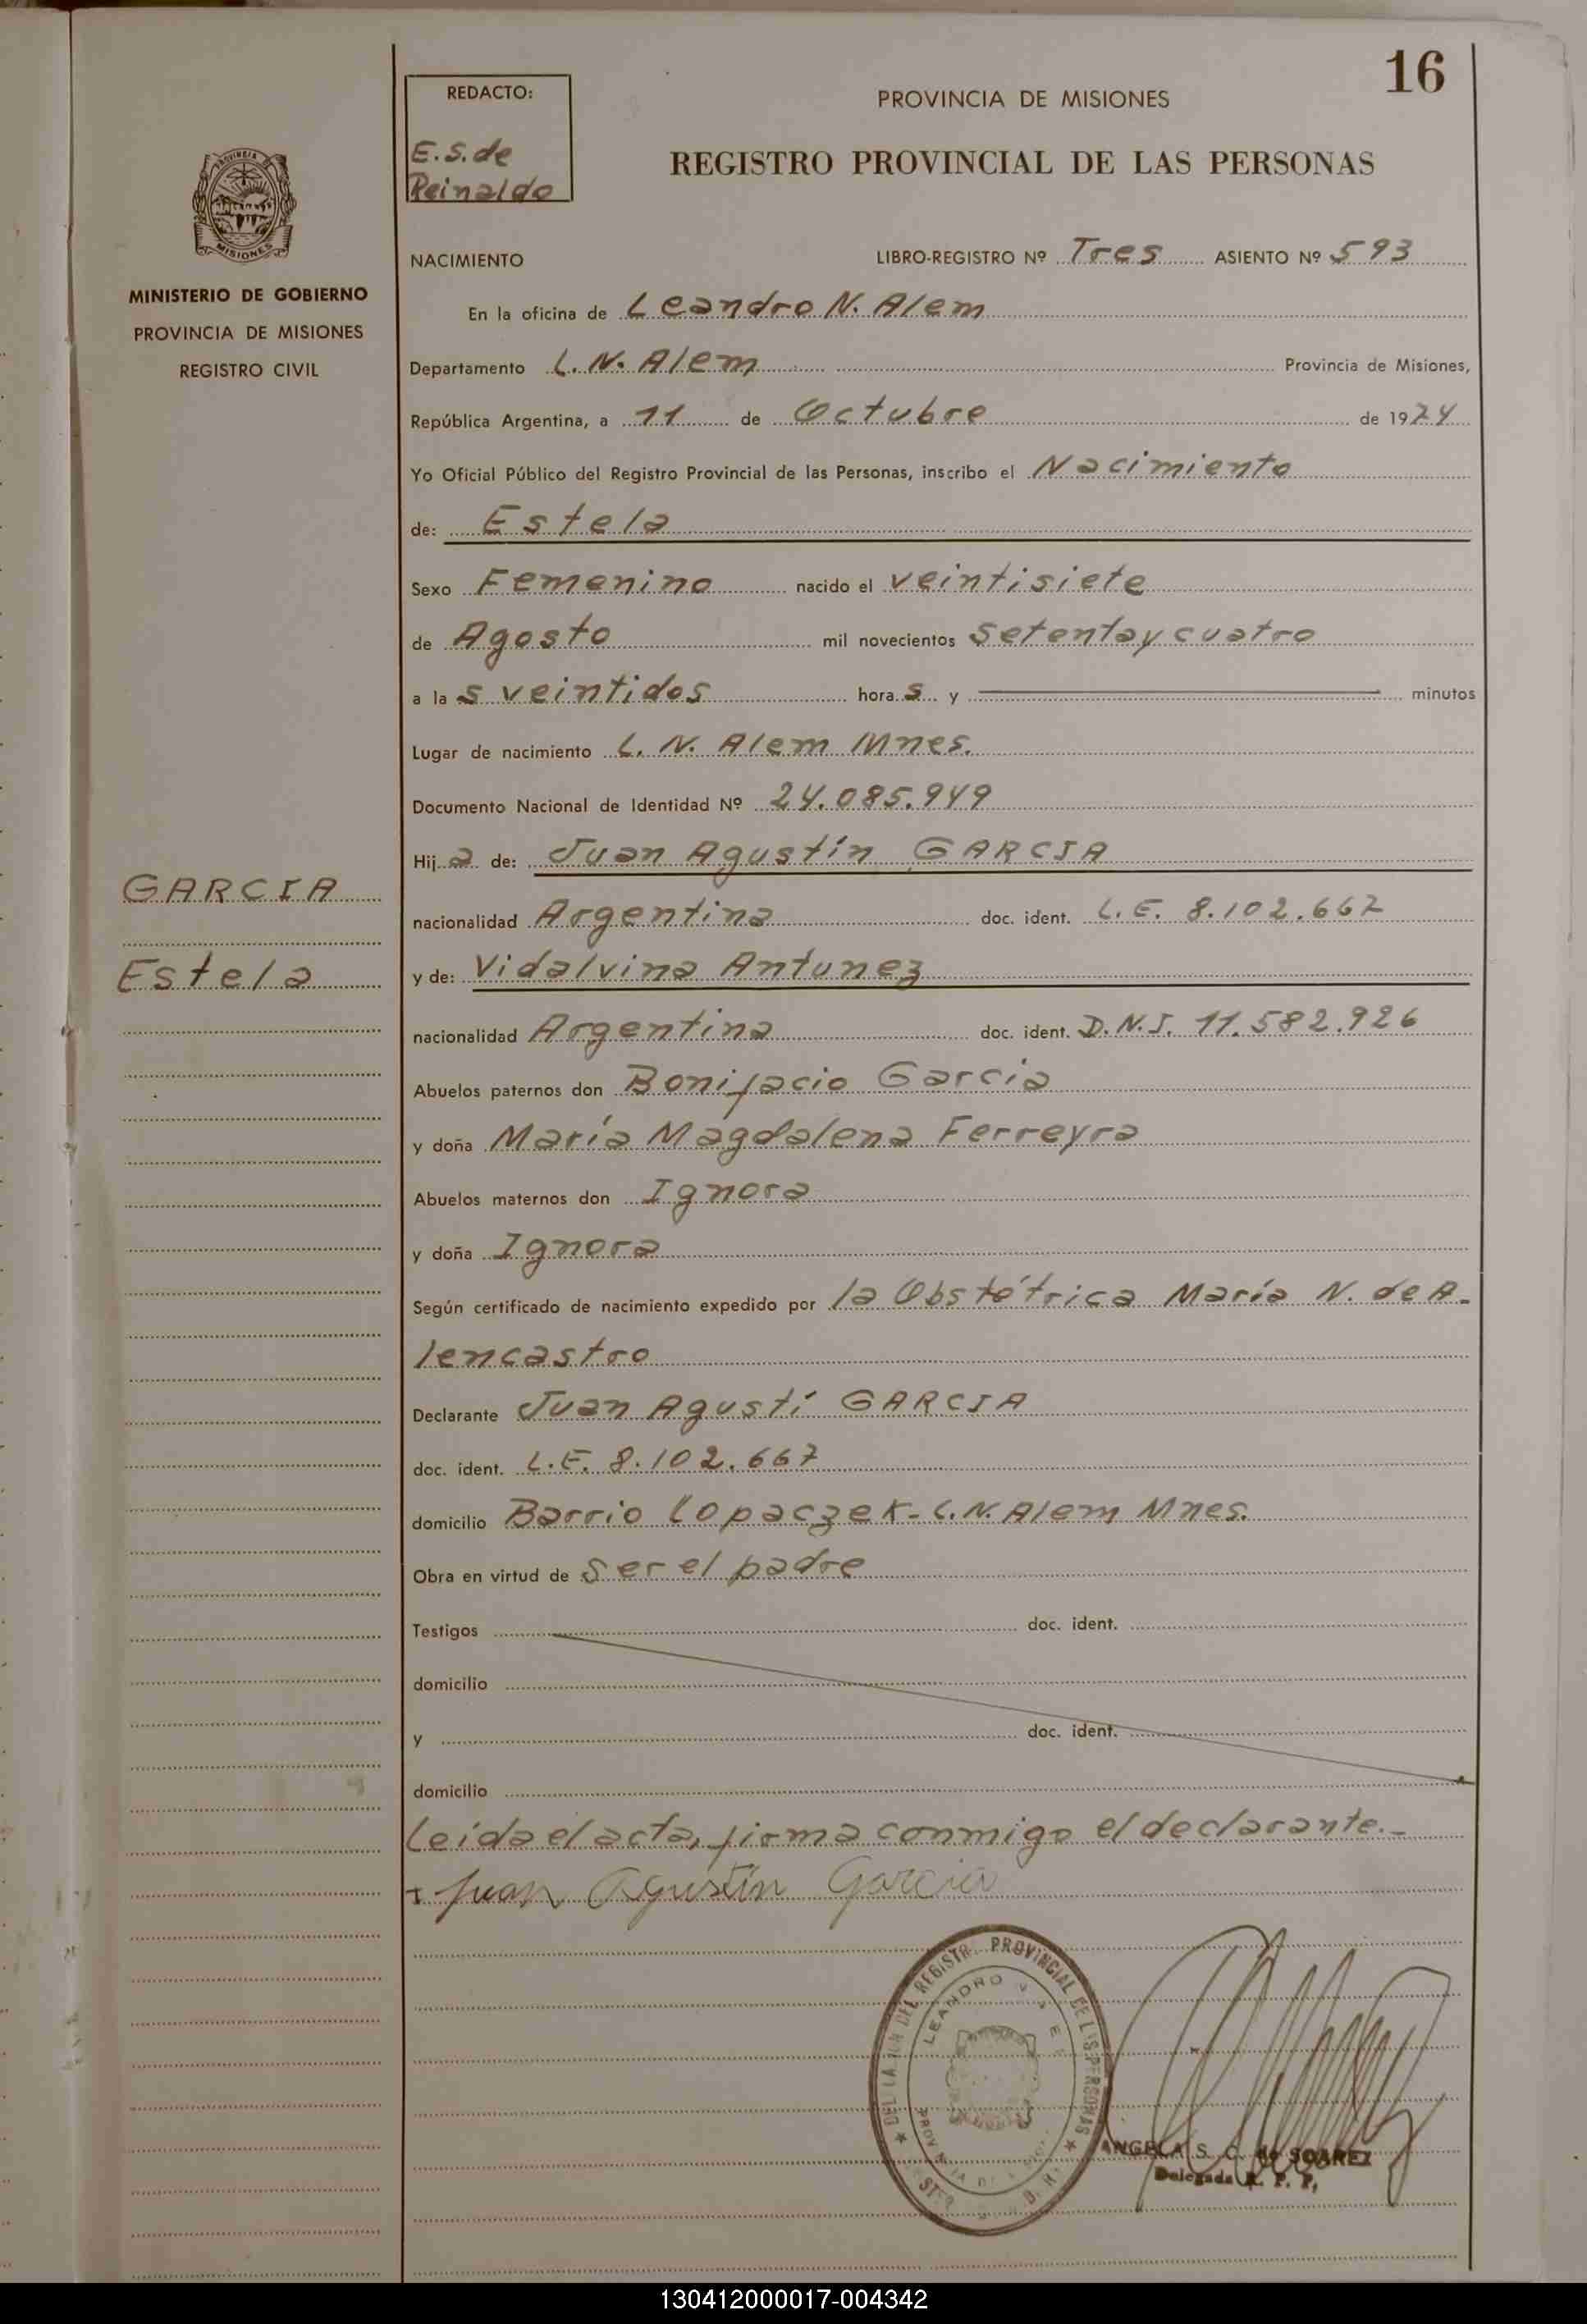 16
REDACTO:
E.S. de
Reinaldo
PROVINCIA DE MISIONES
REGISTRO PROVINCIAL DE LAS PERSONAS
PROVINCIA DE
MISIONES
MINISTERIO DE GOBIERNO
PROVINCIA DE MISIONES
REGISTRO CIVIL
NACIMIENTO LIBRO-REGISTRO Nº Tres ASIENTO Nº 593
En la oficina de Leandro N. Alem
Departamento L. N. Alem Provincia de Misiones,
República Argentina, a 11 de Octubre de 1974
Yo Oficial Público del Registro Provincial de las Personas, inscribo el Nacimiento
de: Estela
Sexo Femenino nacido el veintisiete
de Agosto mil novecientos setenta y cuatro
a las veintidos horas y minutos
Lugar de nacimiento L. N. Alem Mnes.
Documento Nacional de Identidad Nº 24.085.949
Hija de: Juan Agustín GARCIA
GARCIA
Estela
nacionalidad Argentina doc. ident. L.E. 8.102.667
y de: Vidalvina Antunez
nacionalidad Argentina doc. ident. D.N.I. 11.582.926
Abuelos paternos don Bonifacio Garcia
y doña María Magdalena Ferreyra
Abuelos maternos don Ignora
y doña Ignora
Según certificado de nacimiento expedido por la Obstétrica María N. de A-
lencastro
Declarante Juan Agustí GARCIA
doc. ident. L.E. 8.102.667
domicilio Barrio Lopaczek - L.N. Alem Mnes.
Obra en virtud de ser el padre
Testigos doc. ident.
domicilio
y doc. ident.
domicilio
Leida el acta, firma conmigo el declarante.-
+ Juan Agustín Garcia
DEL REGISTR PROVINCIAL DE LAS PERSONAS
LEANDRO
ANGELA S. C. de SOAREZ
Delegada R. P. P.
130412000017-004342